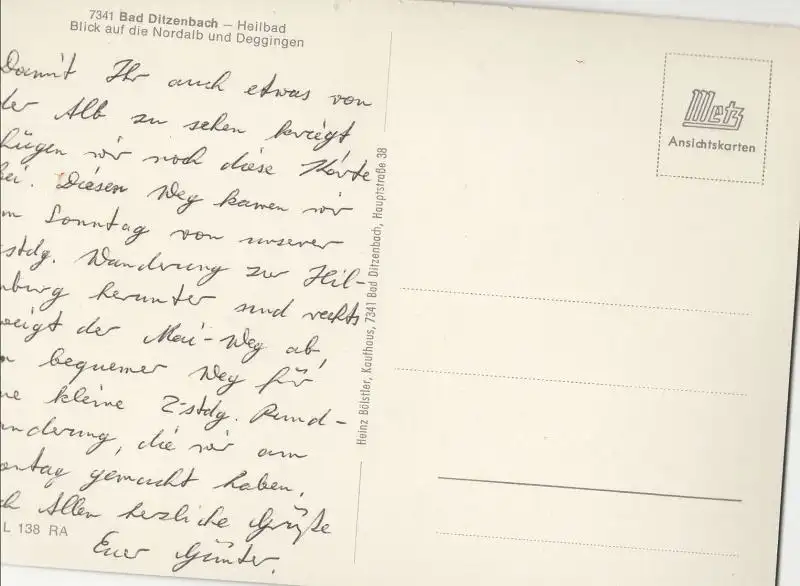 7341 Bad Ditzenbach – Heilbad
Blick auf die Nordalb und Deggingen
Damit Ihr auch etwas von
der Alb zu sehen kriegt
fügen wir noch diese Karte
bei. Diesen Weg kamen wir
m Sonntag von unserer
stdg. Wanderung zur Hil-
nburg herunter und rechts
weigt der Mai-Weg ab,
n bequemer Weg für
ne kleine 2-stdg. Rund-
anderung, die wir am
ontag gemacht haben.
ch Allen herzliche Grüße
Euer Günter.
L 138 RA
Heinz Bölstler, Kaufhaus, 7341 Bad Ditzenbach, Hauptstraße 38
Metz
Ansichtskarten